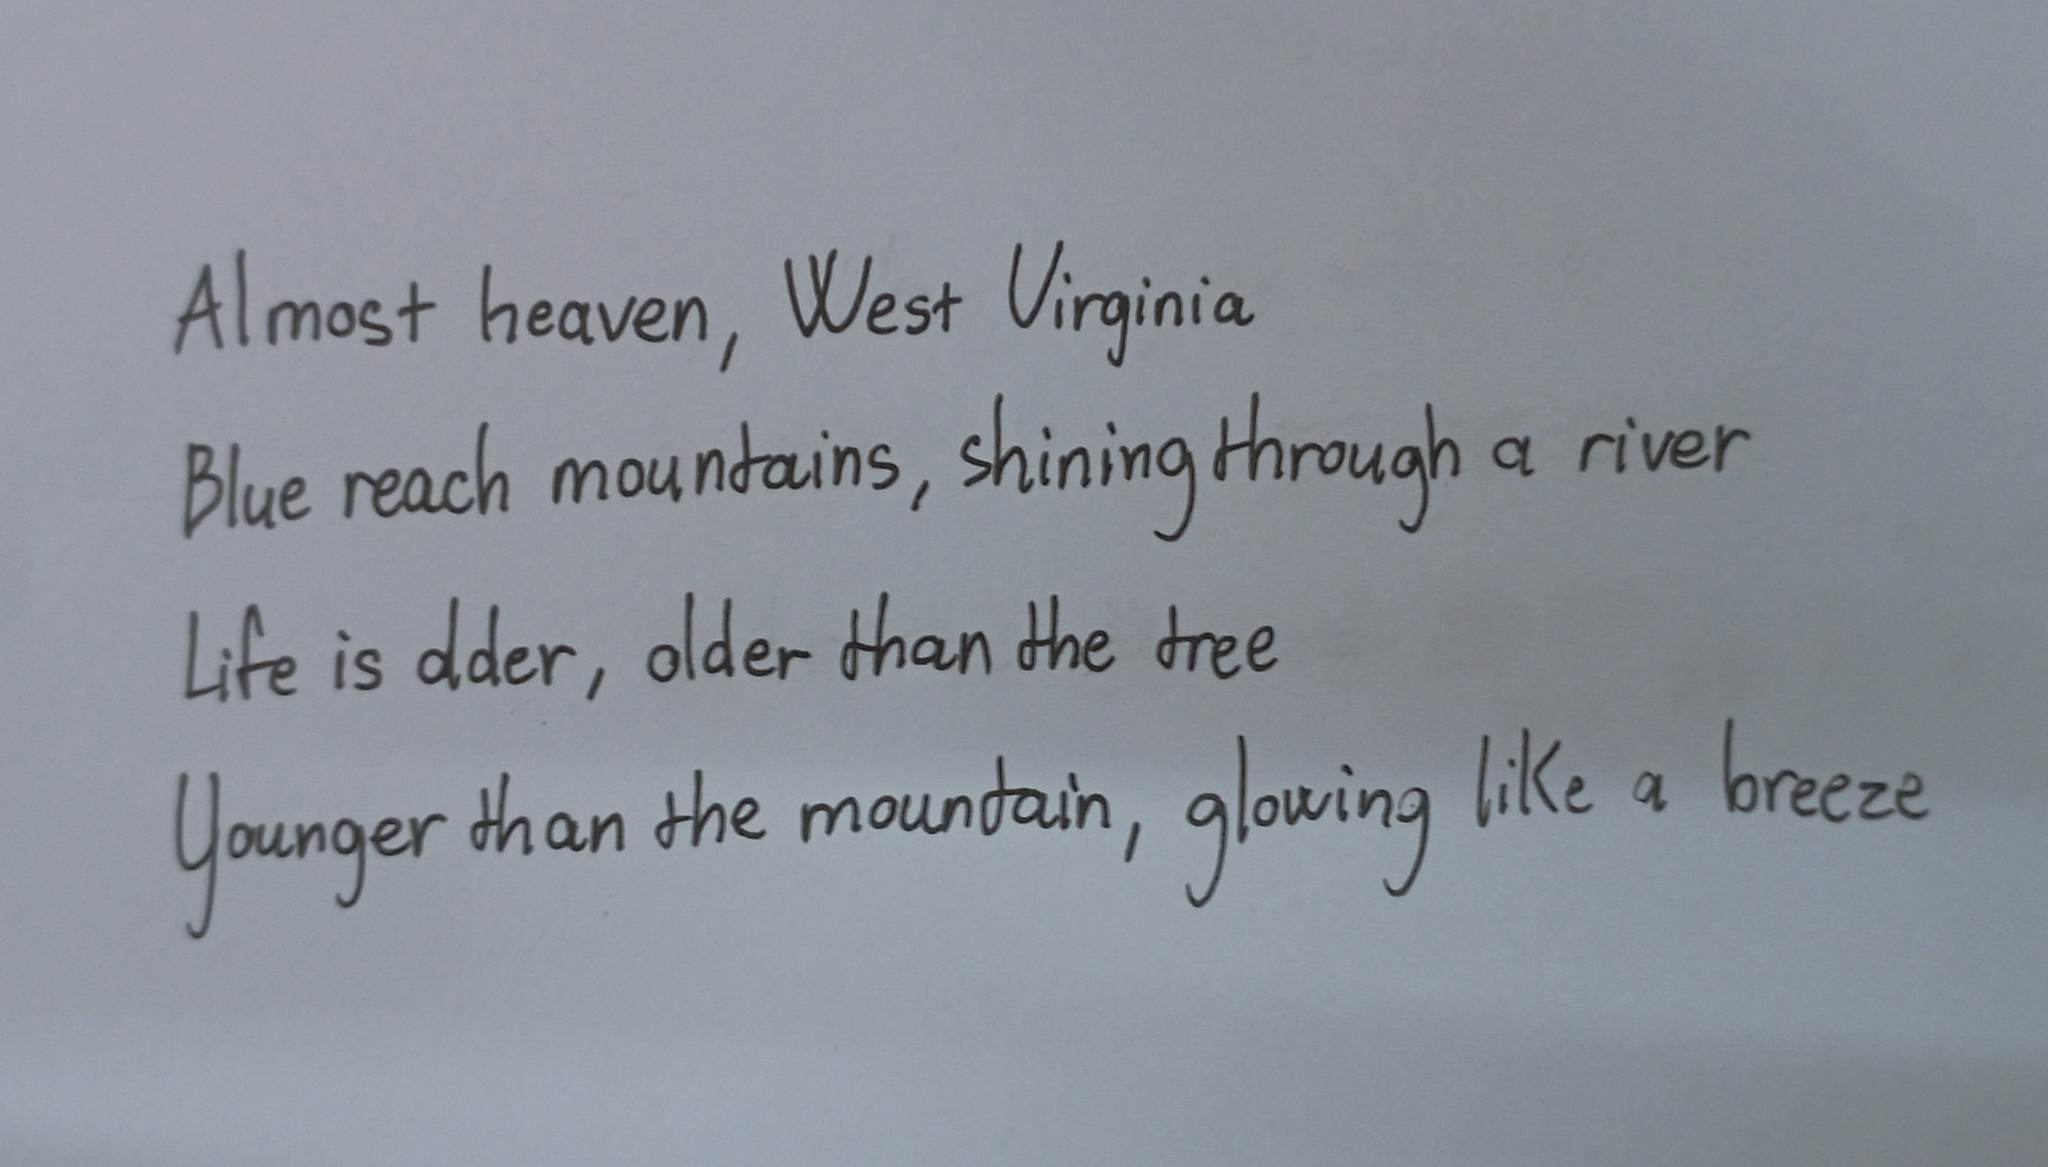 Almost heaven, West Virginia
Blue reach mountains, shining through a river
Life is dder, older than the tree
Younger than the mountain, glowing like a breeze